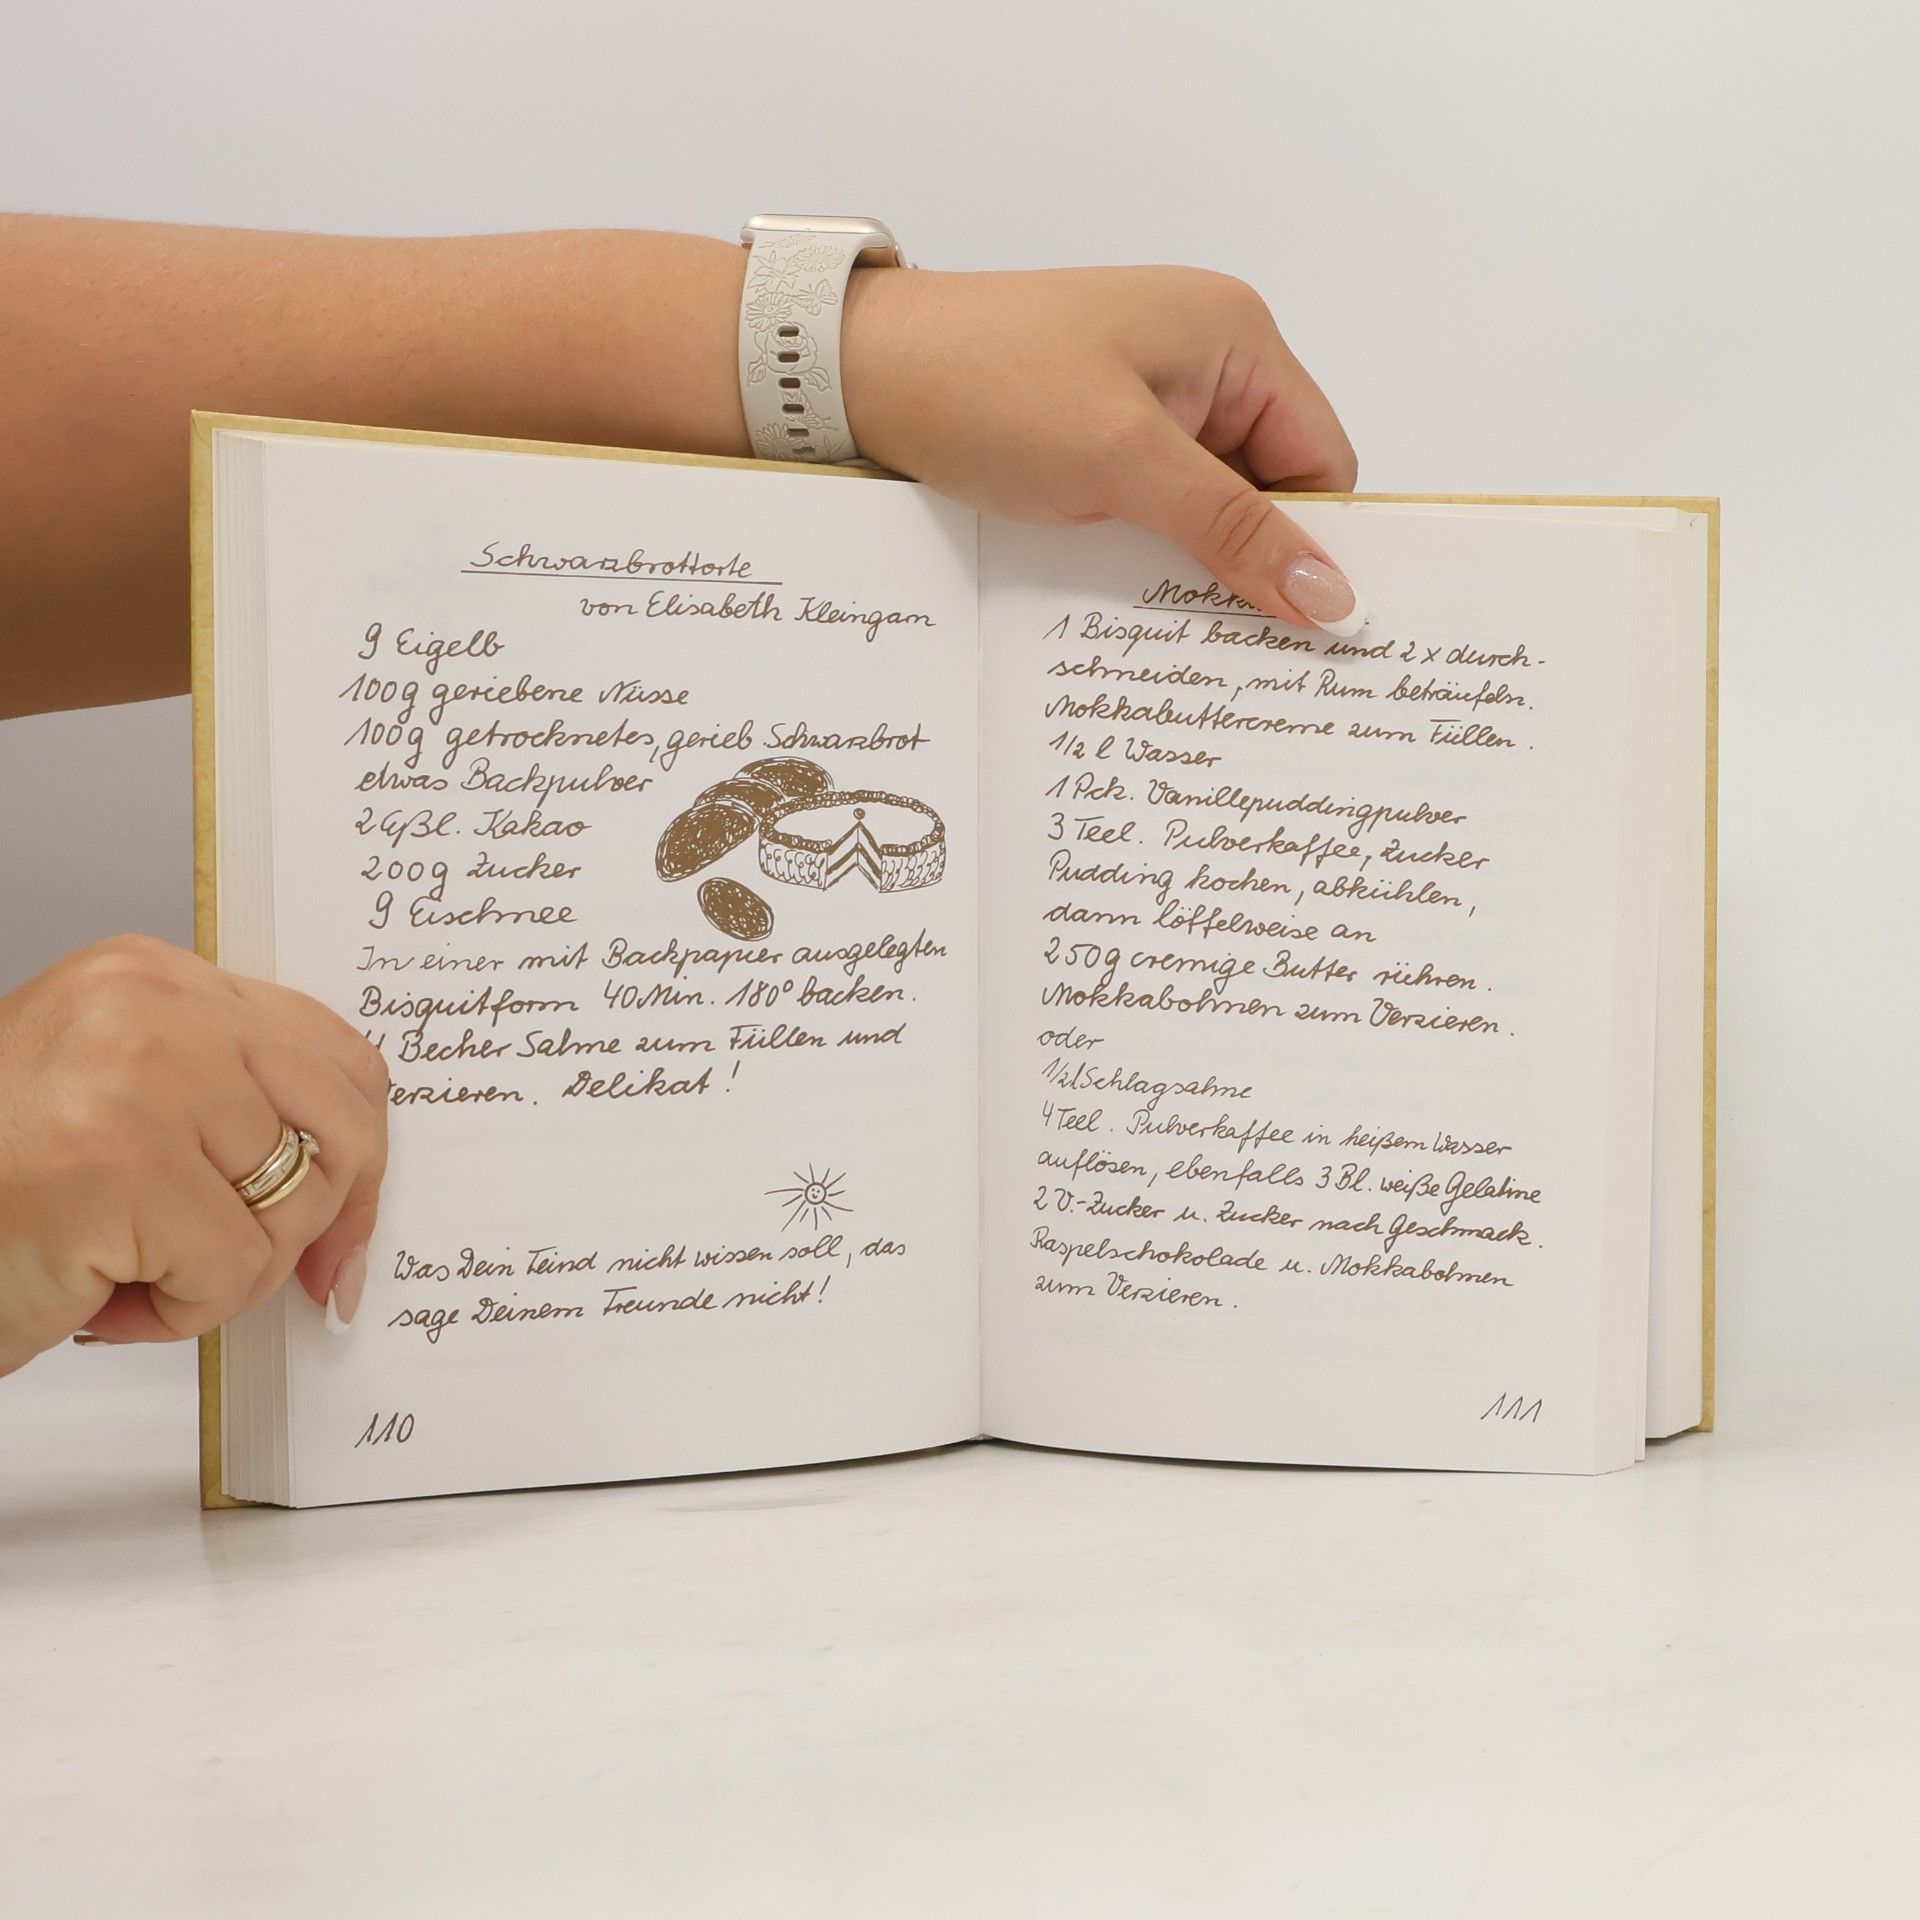 Schwarzbrottorte
von Elisabeth Kleingarn
9 Eigelb
100g geriebene Nüsse
100g getrocknetes, gerieb. Schwarzbrot
etwas Backpulver
2 Eßl. Kakao
200g Zucker
9 Eischnee
In einer mit Backpapier ausgelegten
Bisquitform 40 Min. 180° backen.
Becher Sahne zum Füllen und
Verzieren. Delikat!
Was Dein Feind nicht wissen soll, das
sage Deinem Freunde nicht!
110
1 Bisquit backen und 2x durch-
schneiden, mit Rum beträufeln.
Mokkabuttercreme zum Füllen.
1/2 l Wasser
1 Pck. Vanillepuddingpulver
3 Teel. Pulverkaffee, Zucker
Pudding kochen, abkühlen,
dann löffelweise an
250g cremige Butter rühren.
Mokkabohnen zum Verzieren.
oder
1/2 l Schlagsahne
4 Teel. Pulverkaffee in heißem Wasser
auflösen, ebenfalls 3 Bl. weiße Gelatine
2 V.-Zucker u. Zucker nach Geschmack.
Raspelschokolade u. Mokkabohnen
zum Verzieren.
111